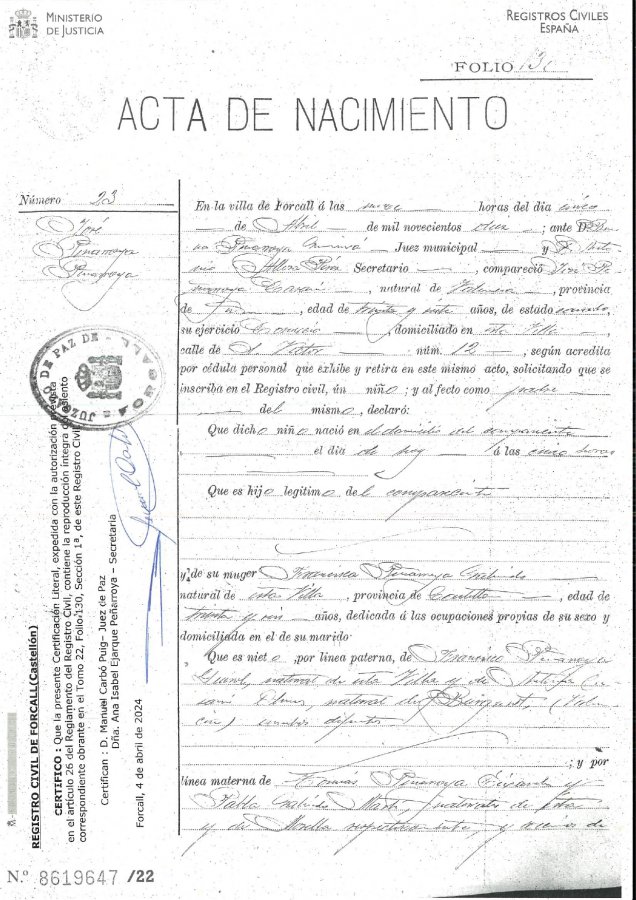 MINISTERIO
DE JUSTICIA
REGISTROS CIVILES
ESPAÑA
FOLIO 130
ACTA DE NACIMIENTO
Número 23
José
Peñarroya
Peñarroya
JUZGADO DE PAZ DE FORCALL
En la villa de Forcall á las nueve horas del día cinco
de Abril de mil novecientos once; ante D.
Peñarroya Juez municipal y D.
Secretario, compareció José
Peñarroya, natural de Valencia, provincia
de, edad de treinta y siete años, de estado casado,
su ejercicio Comercio, domiciliado en esta Villa,
calle de S. Victor núm. 12, según acredita
por cédula personal que exhibe y retira en este mismo acto, solicitando que se
inscriba en el Registro civil, ún niño; y al fecto como padre
del mismo, declaró:
Que dicho niño nació en el domicilio del compareciente
el día de hoy á las cinco horas
Que es hijo legitimo del compareciente
y de su muger Francisca Peñarroya Galindo
natural de esta Villa, provincia de Castellón, edad de
treinta y seis años, dedicada á las ocupaciones propias de su sexo y
domiciliada en el de su marido:
Que es nieto, por línea paterna, de Francisco Peñarroya
natural de esta Villa y de
natural de Burjasot, (Valen
cia) ambos difuntos
; y por
línea materna de Tomás Peñarroya y
Pabla Galindo Martí, naturales de esta
y de Morella respectivamente, y vecinos de
REGISTRO CIVIL DE FORCALL(Castellón)
CERTIFICO : Que la presente Certificación Literal, expedida con la autorización prevista
en el artículo 26 del Reglamento del Registro Civil, contiene la reproducción íntegra del asiento
correspondiente obrante en el Tomo 22, Folio 130, Sección 1ª, de este Registro Civil
Certifican : D. Manuel Carbó Puig- Juez de Paz
Dña. Ana Isabel Ejarque Peñarroya – Secretaria
Forcall, 4 de abril de 2024
N.º 8619647 /22